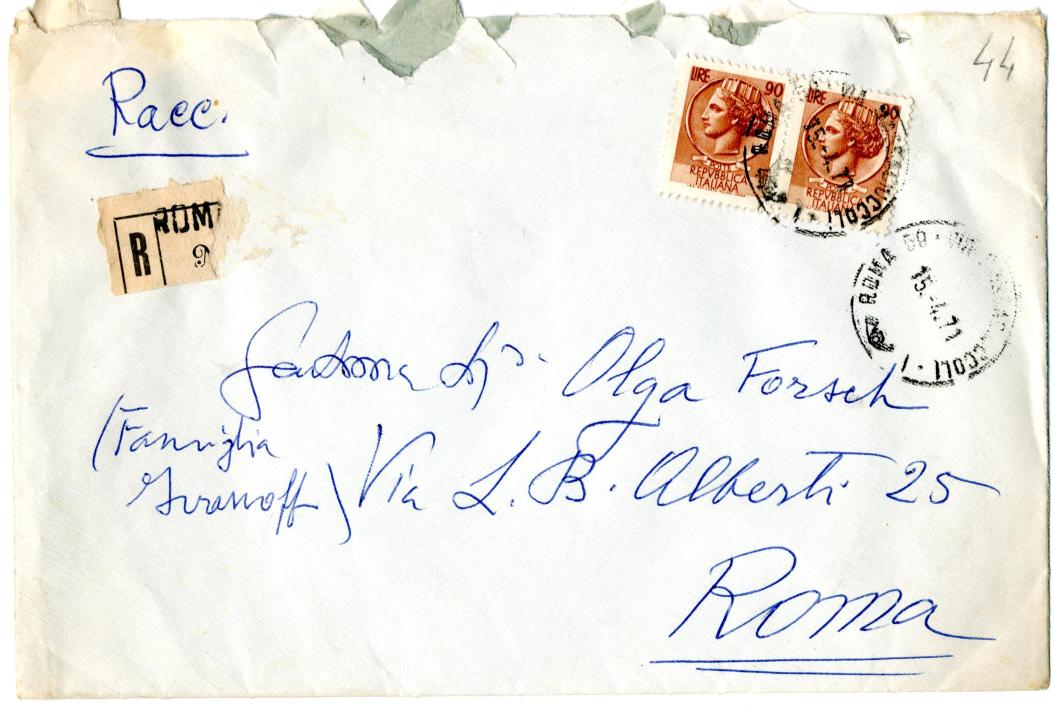 44
Racc.
LIRE 90
POSTE
REPVBBLICA
ITALIANA
LIRE 90
POSTE
REPVBBLICA
ITALIANA
ROM
R
ROMA 50
15.-4.71
Olga Forsch
(Famiglia
Ivanoff) Via L. B. Alberti 25
Roma